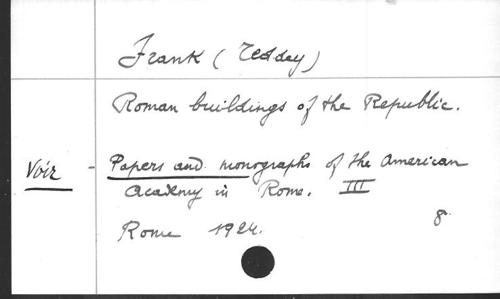 Frank (Teddey)
Roman buildings of the Republic.
Voir - Papers and monographs of the American
Academy in Rome. III
Rome 1924. 8°